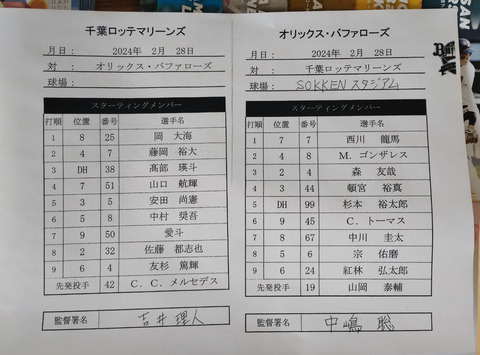 千葉ロッテマリーンズ
月日： 2024年 2月 28日
対 ： オリックス・バファローズ
球場：
スターティングメンバー
打順 位置 番号 選手名
1 8 25 岡 大海
2 4 7 藤岡 裕大
3 DH 38 髙部 瑛斗
4 7 51 山口 航輝
5 3 5 安田 尚憲
6 5 8 中村 奨吾
7 9 50 愛斗
8 2 32 佐藤 都志也
9 6 4 友杉 篤輝
先発投手 42 C. C. メルセデス
監督署名 吉井理人
オリックス・バファローズ
月日： 2024年 2月 28日
対 ： 千葉ロッテマリーンズ
球場： SOKKENスタジアム
スターティングメンバー
打順 位置 番号 選手名
1 7 7 西川 龍馬
2 4 8 M. ゴンザレス
3 2 4 森 友哉
4 3 44 頓宮 裕真
5 DH 99 杉本 裕太郎
6 9 45 C. トーマス
7 8 67 中川 圭太
8 5 6 宗 佑磨
9 6 24 紅林 弘太郎
先発投手 19 山岡 泰輔
監督署名 中嶋 聡